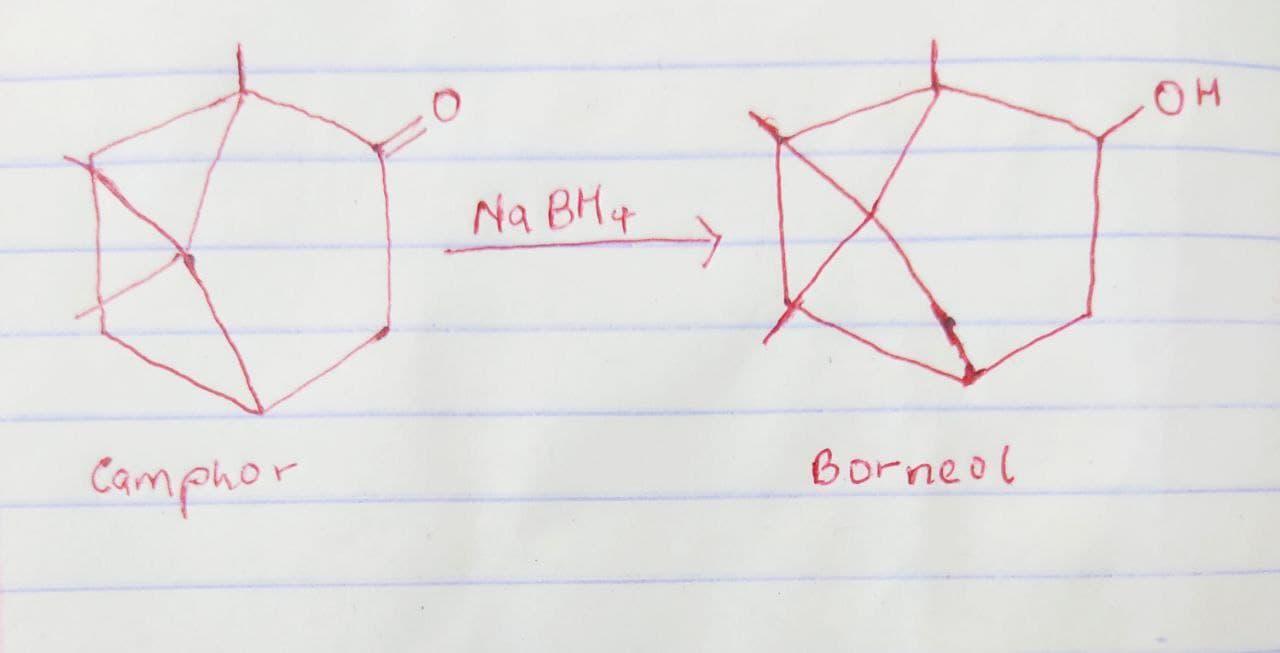 O
OH
NaBH4
Camphor
Borneol